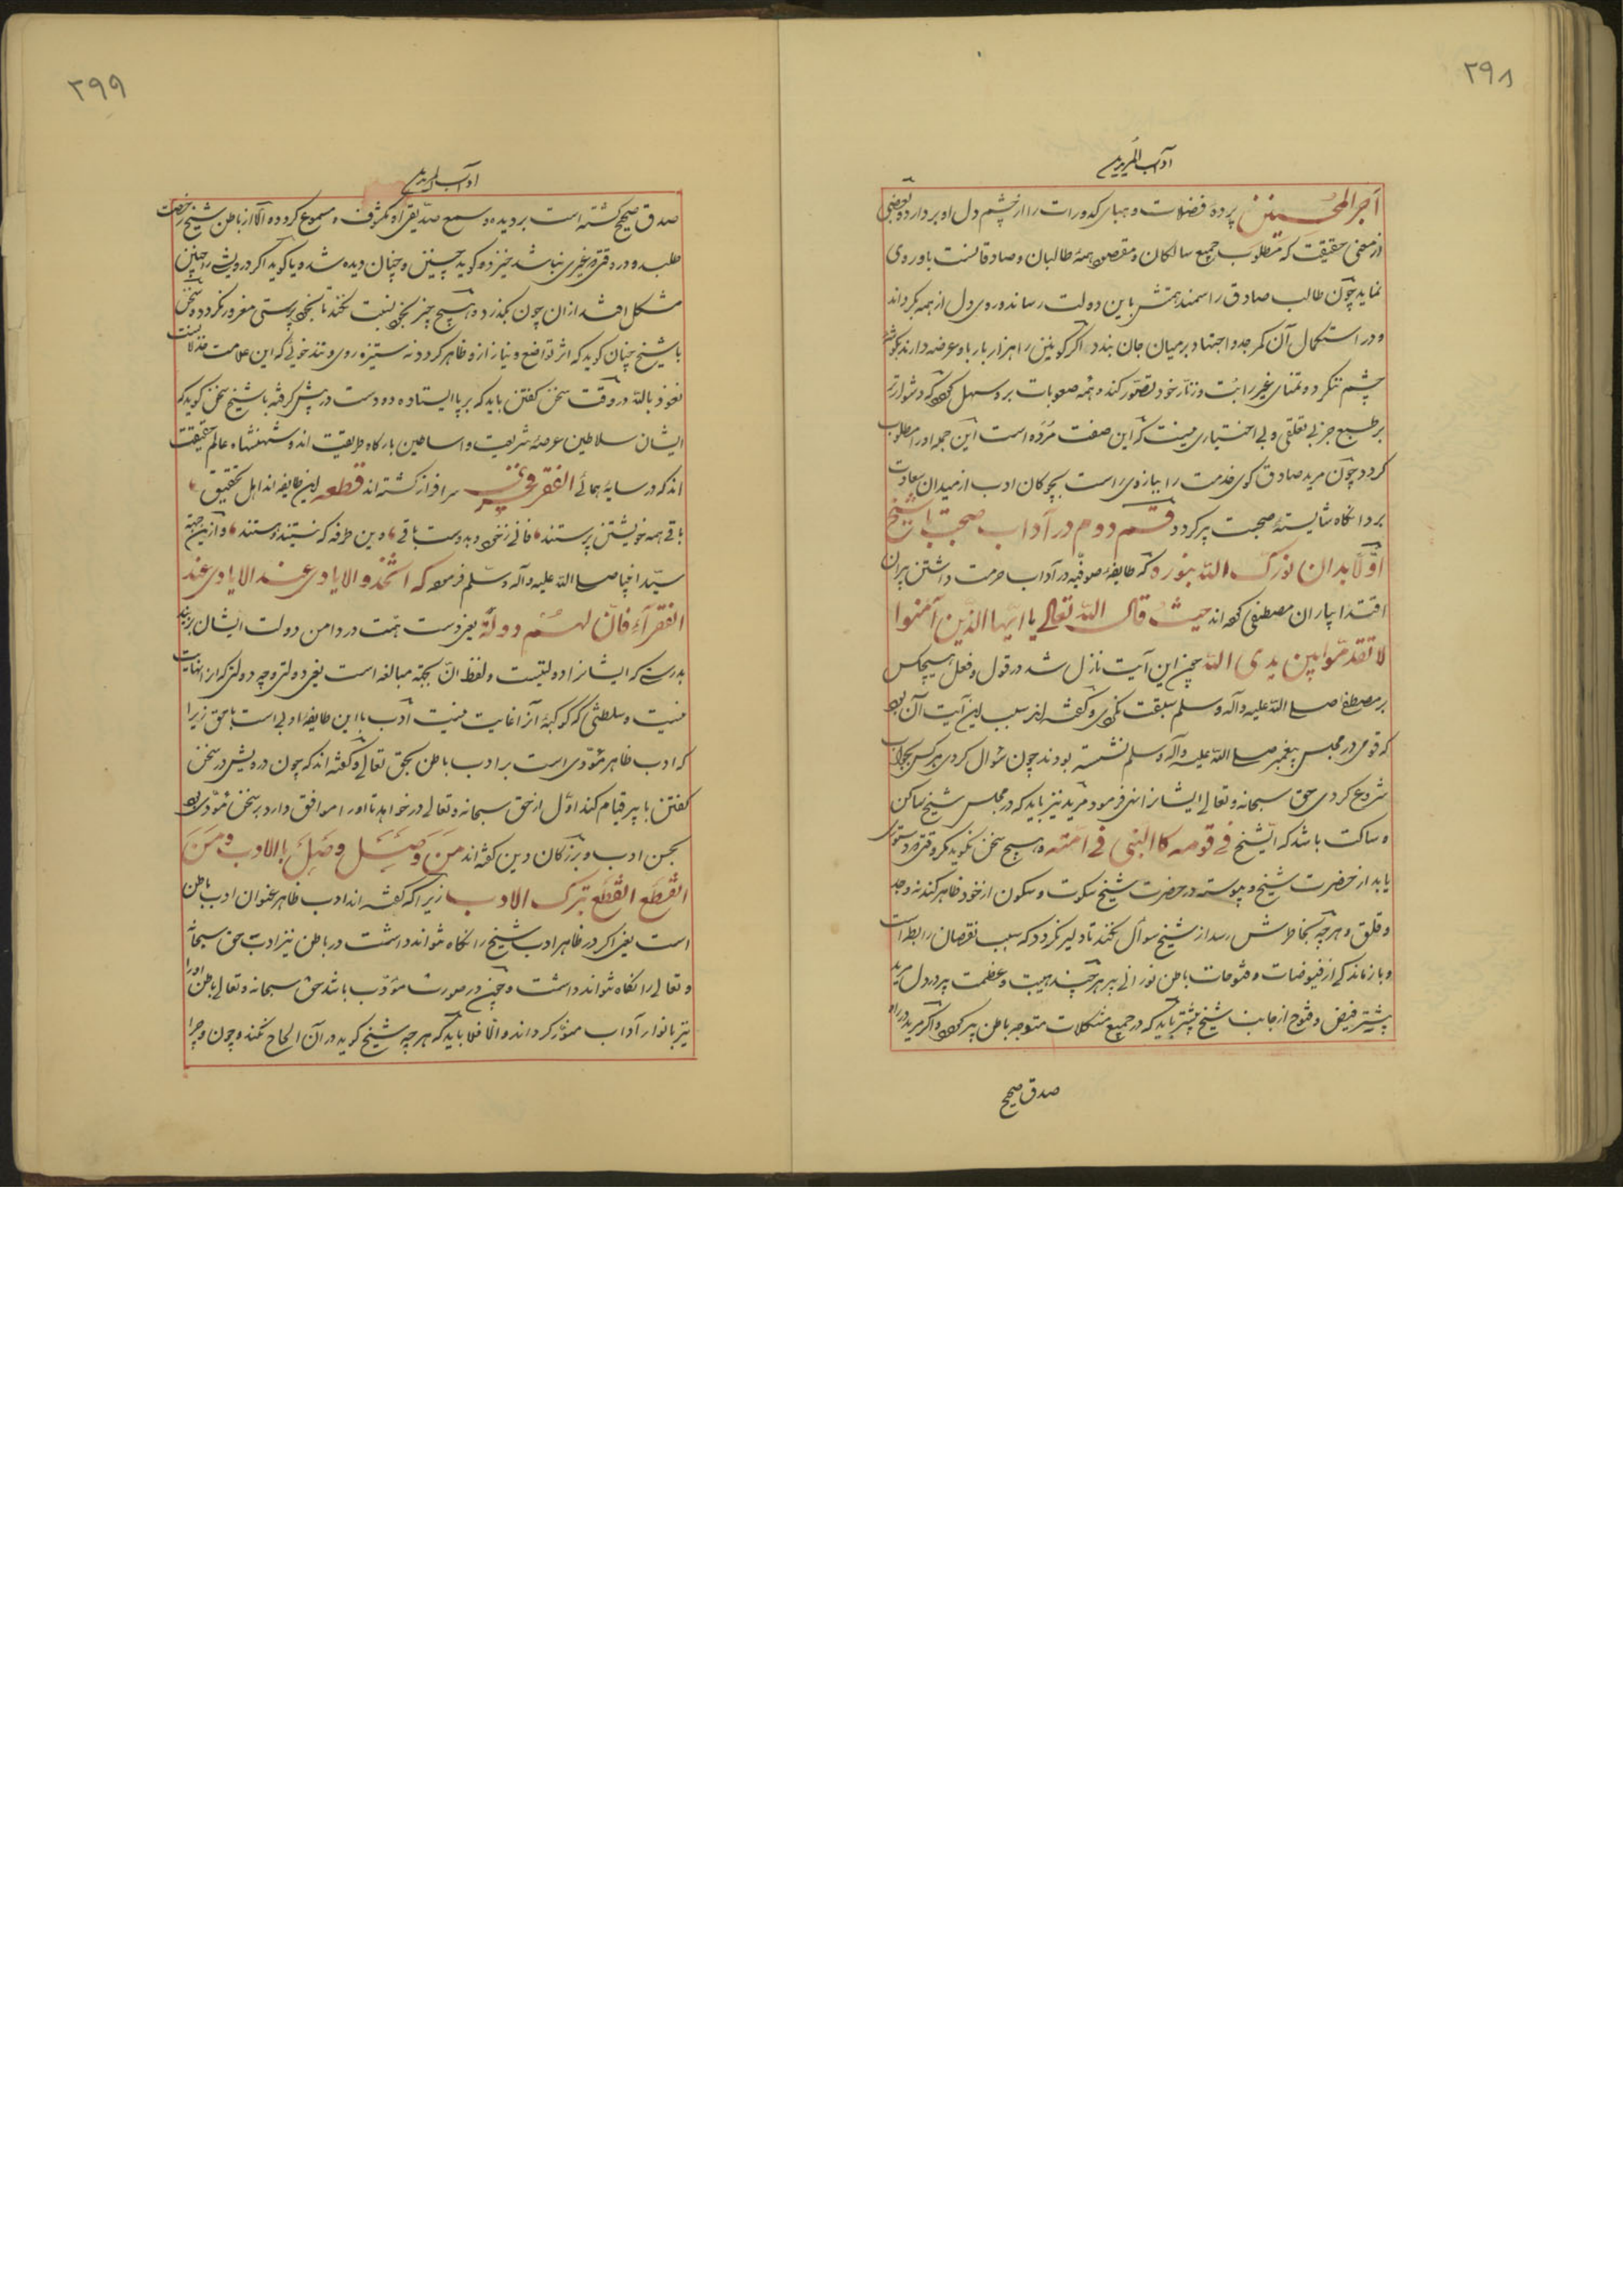 ۲۹۸
آداب المریدین
اجر المحسنین پرده فضلات و هبای کدورات را از چشم دل او بردارد و بعضی
از معنی حقیقت که مطلوب جمیع سالکان و مقصود همهٔ طالبان و صادقانست باو روی
نماید چون طالب صادق را سمند همتش باین دولت رساند و روی دل از همه بگرداند
و در استکمال آن کمر جد و اجتهاد بر میان جان بندد اگر کونین را هزار بار باو عرضه دارند بگوشهٔ
چشم ننگرد و تمنای غیر را بت و زنّار خود تصوّر کند و همه صعوبات برو سهل گردد که دشوارتر
بر طبع جز بی تعلقی و بی اختیاری نیست که این صفت مُرده است این جمله او را مطلوب
گردد چون مرید صادق گوی خدمت را بیازه‌ی راست بچوکان ادب از میدان سعادت
برد انگاه شایستهٔ صحبت پیر گردد قسم دوم در آداب صحبت با شیخ
اوّلا بدان نوّرک اللّه بنوره که طایفهٔ صوفیّه در آداب حرمت داشتن پیران
اقتدا بیاران مصطفی کرده اند حیث قال اللّه تعالی یا ایّها الذین آمنوا
لا تقدّموا بین یدی اللّه چون این آیت نازل شد در قول و فعل هیچکس
بر مصطفا صلی اللّه علیه و آله و سلم سبقت نکردی و گفته اند سبب این آیت آن بود
که قومی در مجلس پیغمبر صلی اللّه علیه و آله و سلم نشسته بودند چون سُوال کردی هر کس بجواب
شروع کردی حق سبحانه و تعالی ایشانرا نهی فرمود مرید نیز باید که در مجلس شیخ ساکن
و ساکت باشد که الشّیخ فی قومه کا النبی فی امّته و هیچ سخن نگوید مگر وقتی که دستوری
یابد از حضرت شیخ و پیوسته در حضرت شیخ سکوت و سکون از خود ظاهر کند نه وجد
و قلق و هر چه بخاطرش رسد از شیخ سوأل نکند تا دلیر نگردد که سبب نقصان رابط است
و باز ماند کی از فیوضات و فتوحات باطن نورانی پیر هر چند هیبت و عظمت پیر در دل مرید
بیشتر فیض و فتوح از جانب شیخ بیشتر باید که در جمیع مشکلات متوجه باطن پیر گردد و اگر مرید در راه
صدق صحیح
۲۹۹
اداب المریدین
صدق صحیح گشته است بردیده و سمع صدّیقرا و مکشوف و مسموع گردد و الّا از باطن شیخ رخصت
طلبد و در وقتیکه غیری نباشد خیزد و گوید چنین و چنان دیده شده یا گوید اگر درویش را چنین
مشکل افتد از آن چون بگذرد و هیچ چیز بخود نسبت نکند تا بخود پرستی مغرور نگردد و سخن
با شیخ چنان گوید که اثر تواضع و نیاز ازو ظاهر گردد نه ستیزه روی و تندخوئی که این علامت خذلانست
نعوذ باللّه در وقت سخن گفتن باید که بر پا ایستاده و دو دست در پیش گرفته با شیخ سخن گوید که
ایشان سلاطین عرصهٔ شریعت و اساطین بارگاه طریقت اند و شهنشاه عالم حقیقت
اند که در سایهٔ همائے الفقر فخری سرافراز گشته اند قطعه این طایفه اند اهل تحقیق
باقی همه خویشتن پرستند فانی ز خود و بدوست باقی وین طرفه که نیستند و هستند و از این جهته
سیّد انبیا صلی اللّه علیه و آله و سلّم فرمود که اتّخذو الایادی عند الایادی عند
الفقرآءِ فانّ لهُم دولةً یعنی دست همّت در دامن دولت ایشان زنید
بدرستی که ایشانرا دولتیست و لفظ انّ بجهة مبالغه است یعنی دولتی و چه دولتی که از انهایت
نیست و سلطنتی که کوکبهٔ آنرا غایت نیست ادب با این طایفه اولی است با حق زیرا
که ادب ظاهر مؤدّی است بر ادب باطن بحق تعالی و گفته اند که چون درویش در سخن
گفتن با پیر قیام کند اوّل از حق سبحانه و تعالی در خواهد تا او را موافق دارد بر سخن مؤدّی بود
بحسن ادب و بزرگان دین گفته اند مَن وَصَلَ وصَلَ باالادب و مَن
انقطَعَ انقطَعَ بترک الادب زیرا که گفته اند ادب ظاهر عنوان ادب باطن
است یعنی اگر در ظاهر ادب شیخ را نگاه تواند داشت در باطن نیز ادب حق سبحانه
و تعالی را نگاه تواند داشت و چون در صورت مؤدّب باشد حق سبحانه و تعالی باطن او را
نیز بانوار آداب منوّر گرداند و الّا فلا باید که هر چه شیخ گوید در آن الحاح نکند و چون و چرا